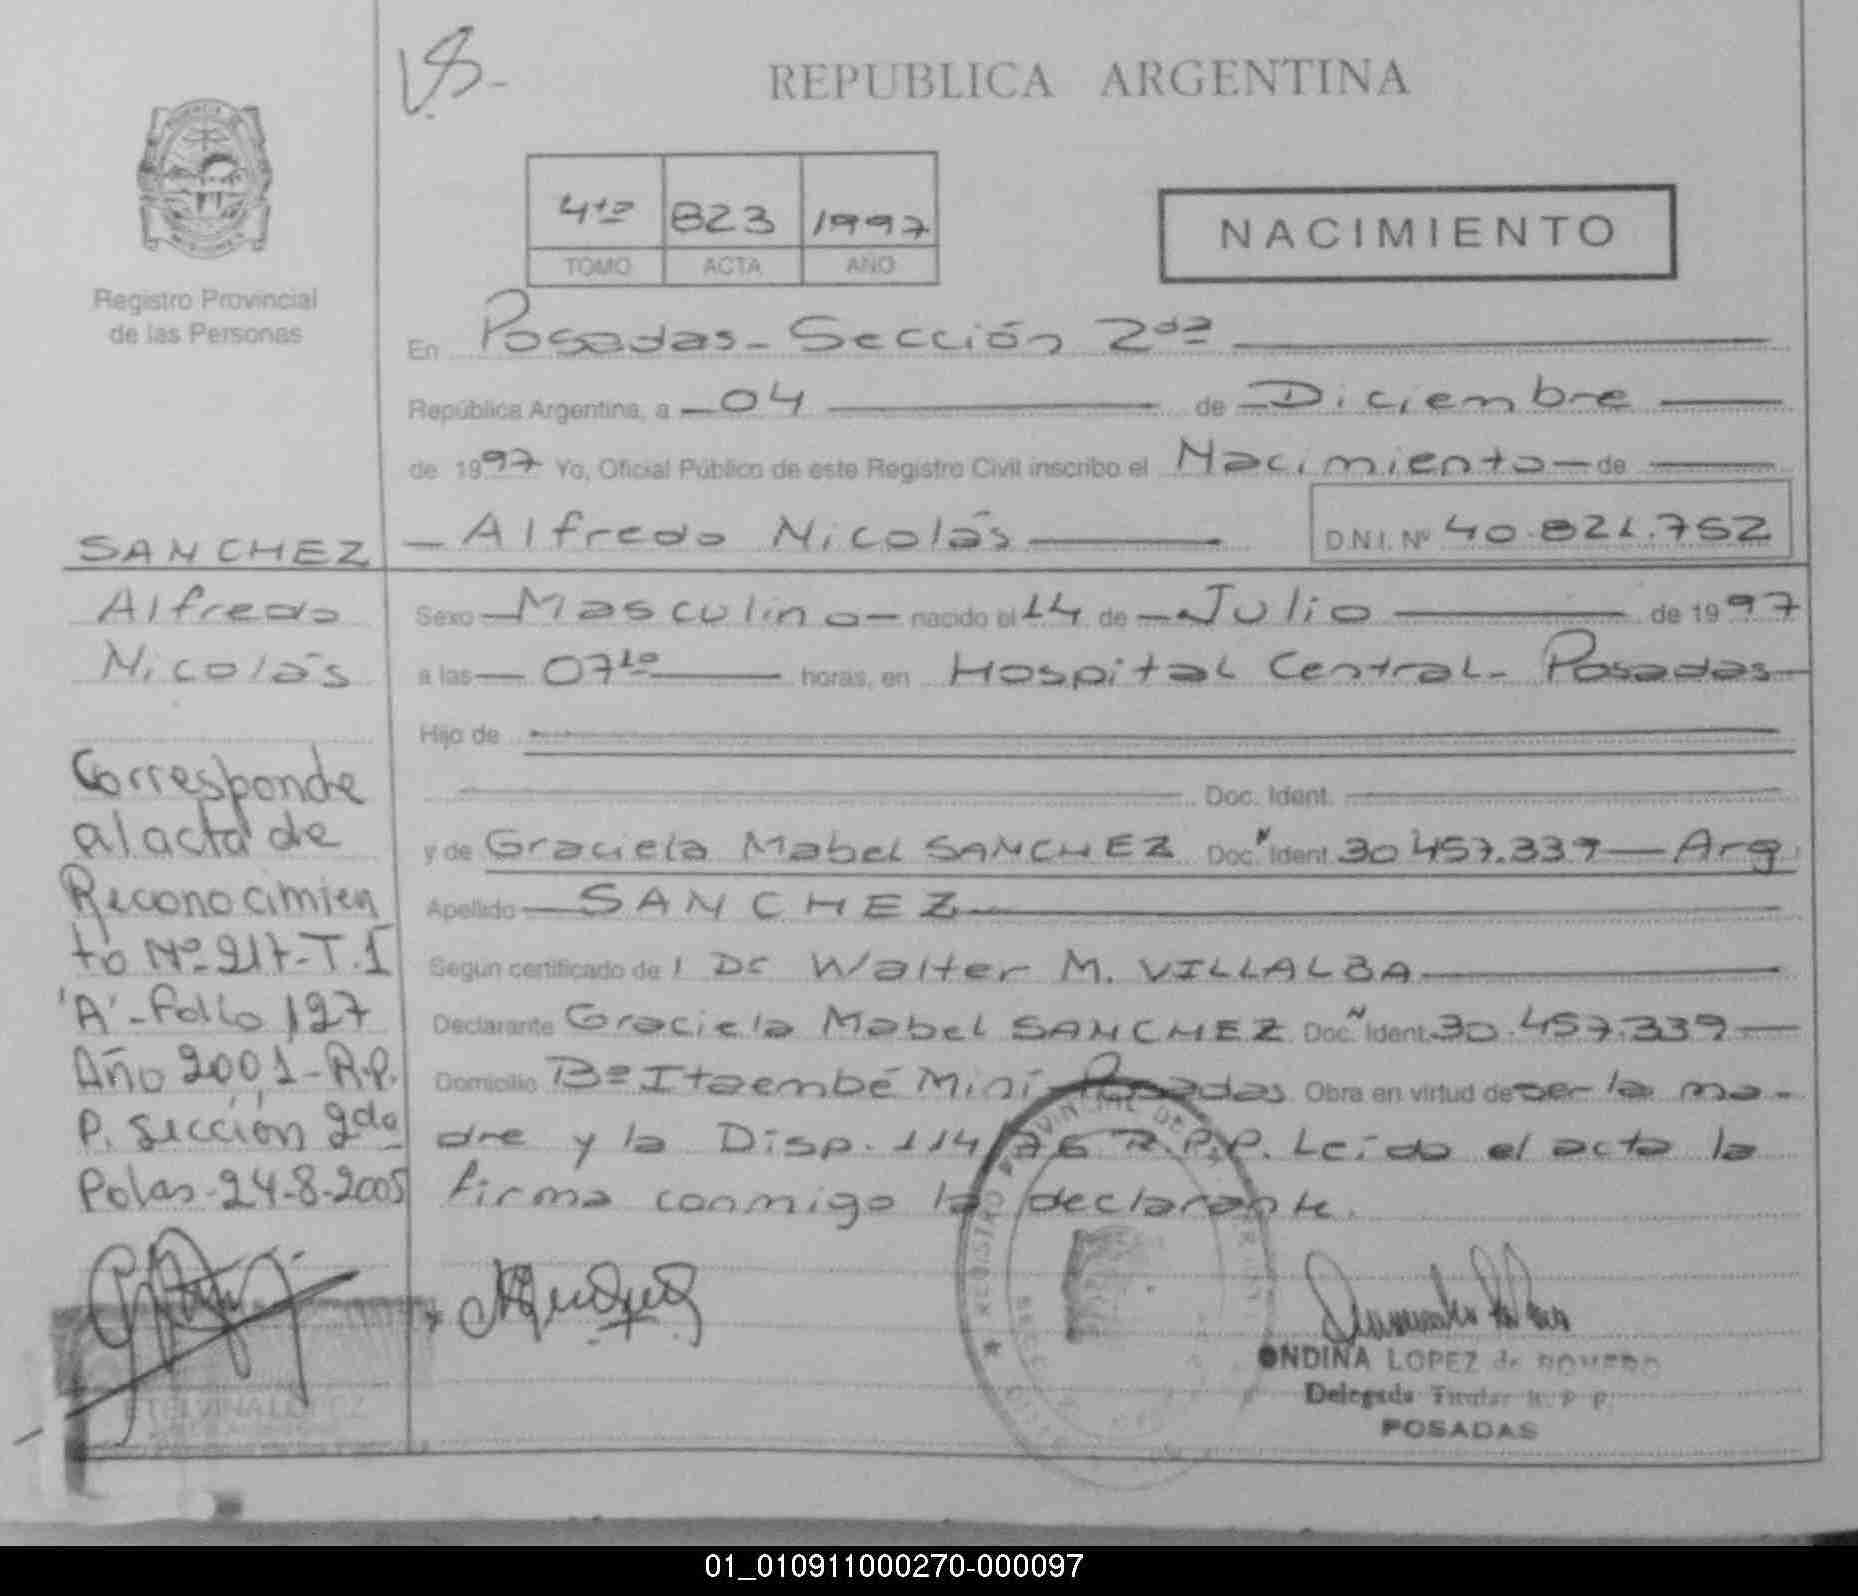 REPUBLICA ARGENTINA
4to 823 1997
TOMO ACTA AÑO
NACIMIENTO
Registro Provincial
de las Personas
En Posadas - Sección 2da
República Argentina, a 04 de Diciembre
de 1997 Yo, Oficial Público de este Registro Civil inscribo el Nacimiento de
Alfredo Nicolás D.N.I. Nº 40.821.752
Sexo Masculino nacido el 14 de Julio de 1997
a las 07 10 horas, en Hospital Central - Posadas
Hijo de
Doc. Ident.
y de Graciela Mabel SANCHEZ Doc. Ident. 30.457.339 - Arg.
Apellido SANCHEZ
Según certificado de 1 Dr Walter M. VILLALBA
Declarante Graciela Mabel SANCHEZ Doc. Ident. 30.457.339
Domicilio Bº Itaembé Miní - Posadas Obra en virtud de ser la ma-
dre y la Disp. 114/76 R.P.P. Leído el acta la
firma conmigo la declarante.
SANCHEZ
Alfredo
Nicolás
Corresponde
al acta de
Reconocimien
to Nº 217 - T. I
'A' - Folio 127
Año 2001 - R.P.
P. Sección 2da
Pdas - 24-8-2005
ETELVINA LOPEZ
ONDINA LOPEZ de ROMERO
Delegada Titular R. P. P.
POSADAS
01_010911000270-000097